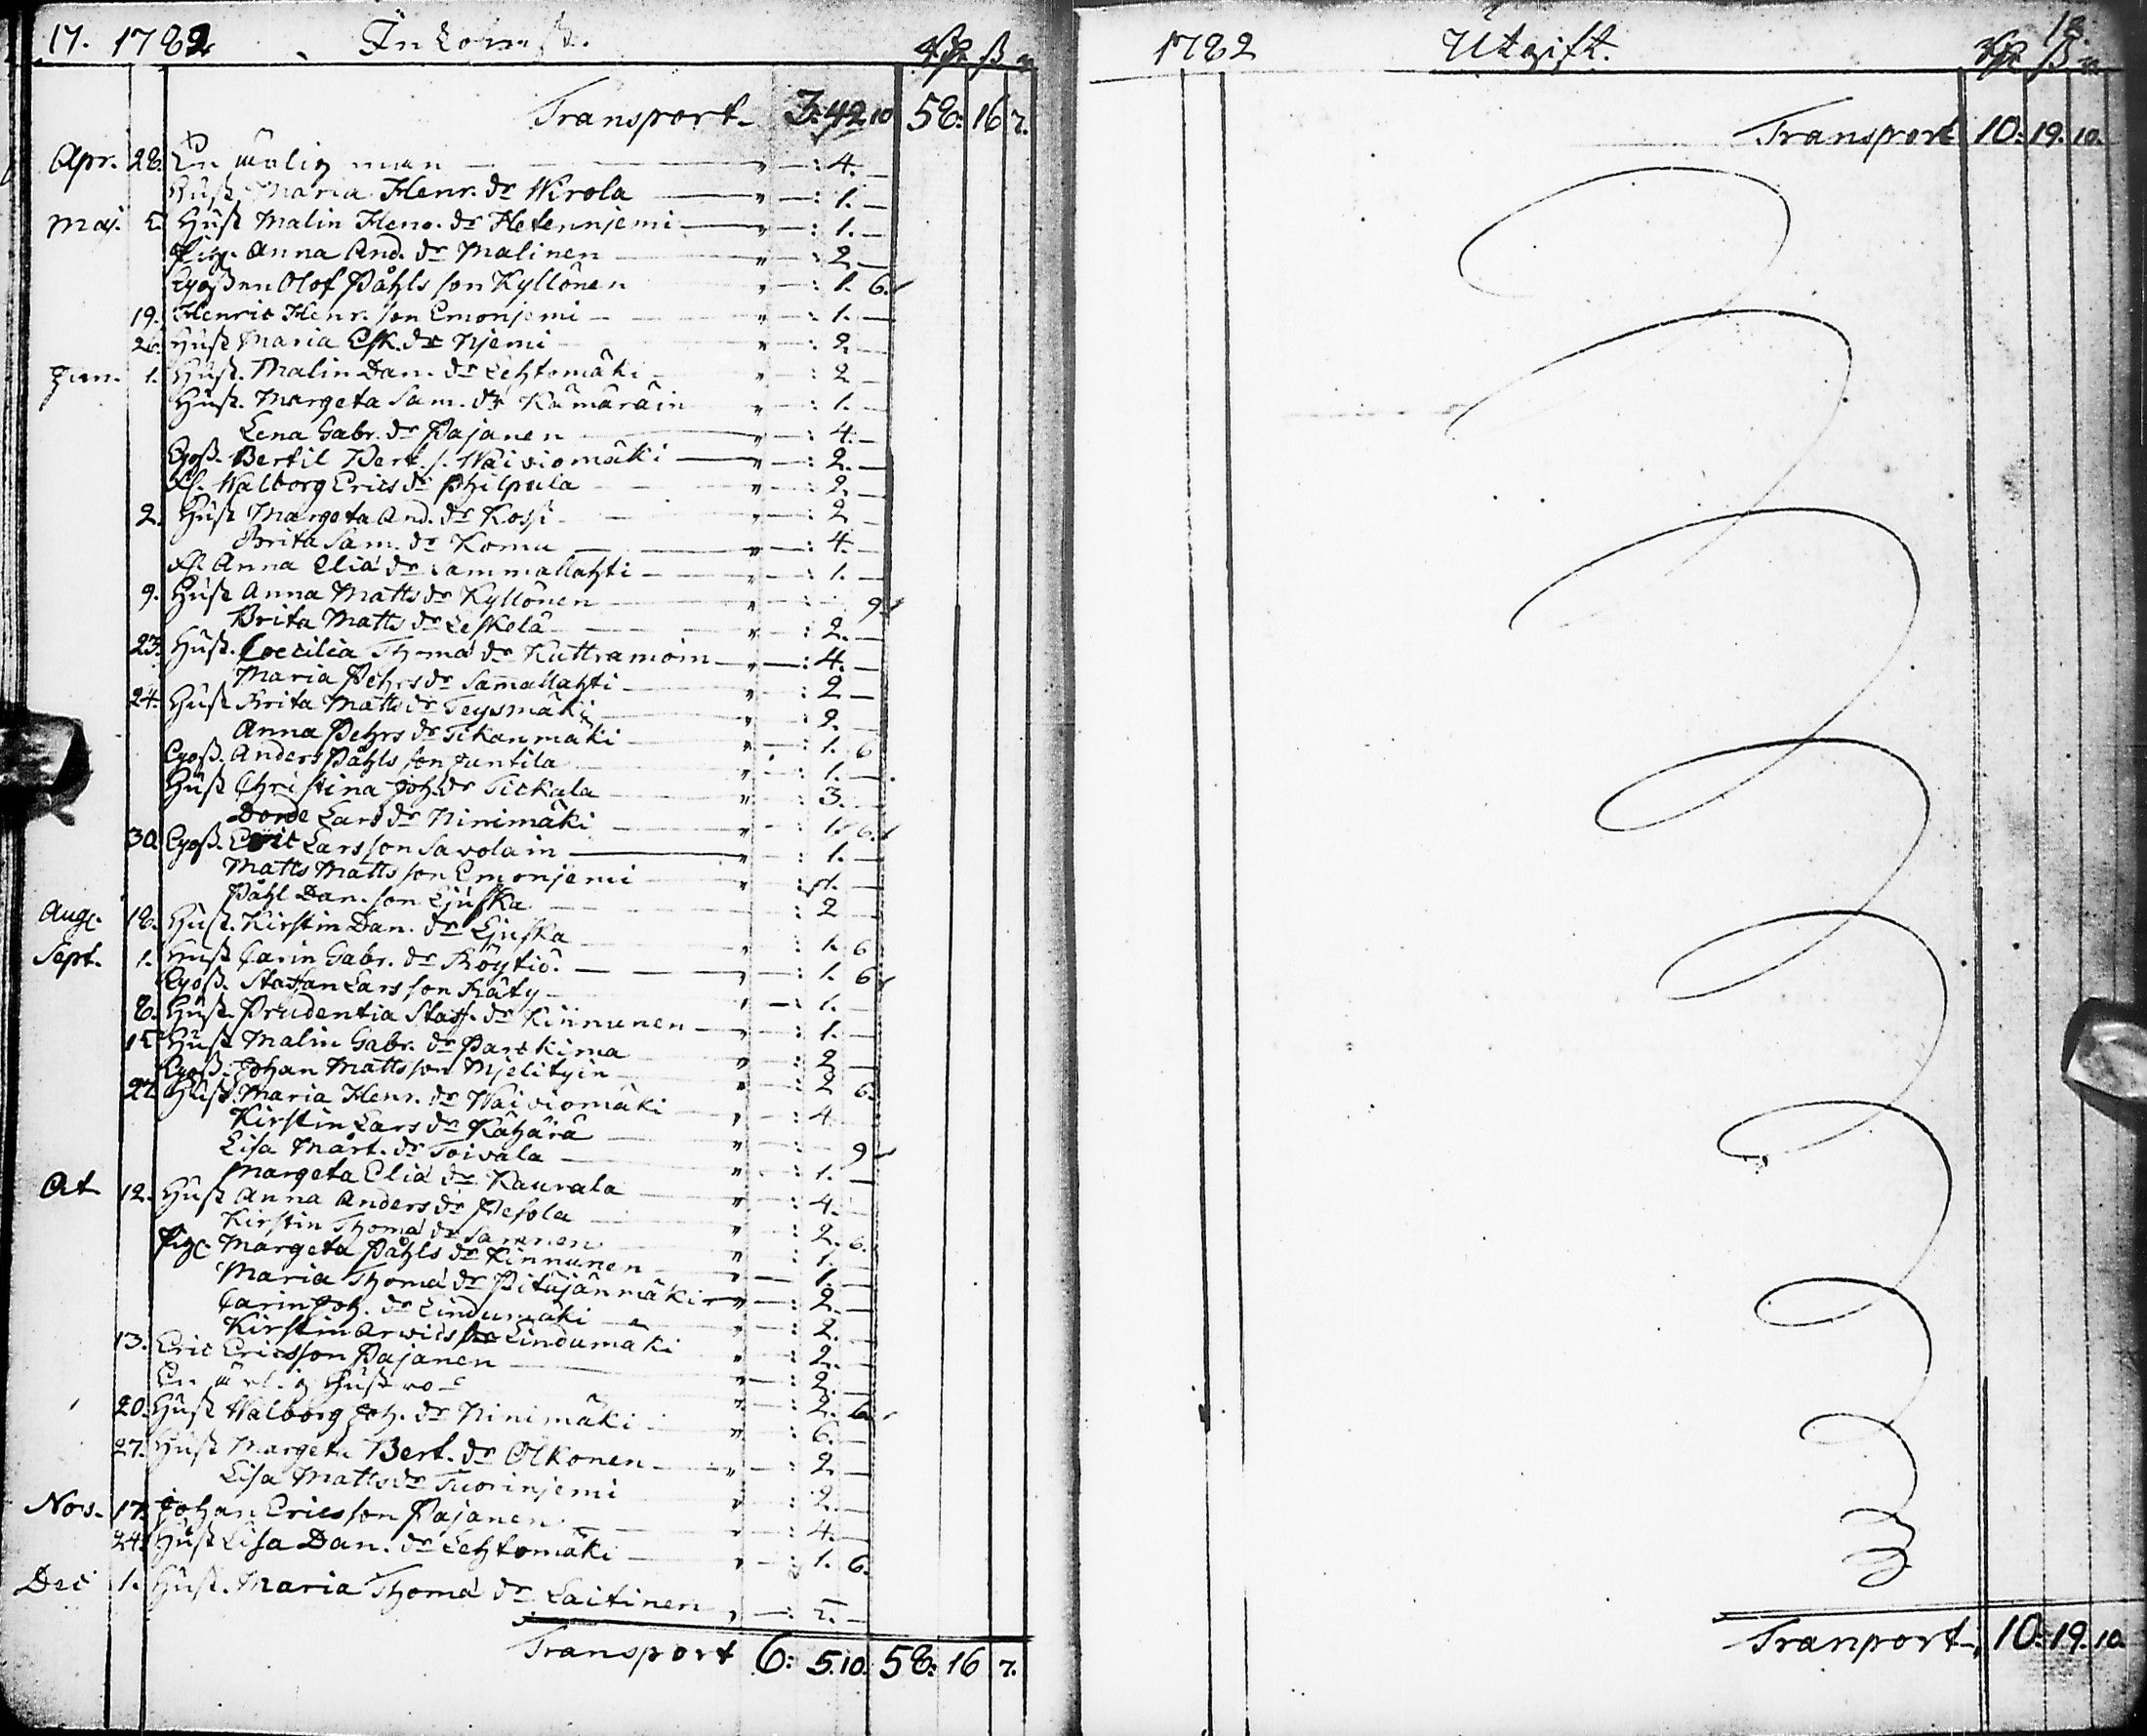 17. 1782 Inkomst.
Rd ß rs
Transport 3:42 10 58: 16 7.
Apr. 28. En ärlig man " — : 4. —
Hust. Maria Henr. dr Wirola " — : 1. —
Maj. 5. Hust Malin Henr. dr Hetennjemi " — : 1. —
Pig. Anna And. dr Malinen " — : 2 —
Gossen Olof Påhls son Kyllönen " — : 1. 6.
19. Henric Henr. son Emonjemi " — : 1. —
26. Hust Maria Esk. dr Njemi " — : 2. —
Jun. 1. Hust. Malin Dan. dr Lehtomäki " — : 2 —
Hust. Margeta Sam. dr Kämäräin " — : 1. —
Lena Gabr. dr Pajanen " — : 4. —
Goss. Bertil Bert. s. Waiviomäki " — : 2. —
Walborg Erics dr Philpula " — : 2. —
2. Hust Margeta And. dr Kossi " — : 2 —
Brita Sam. dr Komu " — : 4. —
Anna Eliä dr Sammallahti " — : 1. —
9. Hust Anna Matts dr Kyllönen " — : 9.
Brita Matts dr Leskelä " — : 2. —
23. Hust. Coecilia Thomä dr Kuttramoin " — : 4. —
Maria Pehrs dr Samallahti " — : 2 —
24. Hust Brita Matts dr Teysmäki " — : 2. —
Anna Pehrs dr Tikanmäki " — : 1. 6
Goss. Anders Påhls son Juntila " — : 1. —
Hust Christina Joh. dr Tickala " — : 3. —
Dorde Lars dr Ninimäki " — : 1. 6.
30. Goss. Eric Lars son Savolain " — : 1. —
Matts Matts son Emonjemi " — : 1. —
Påhl Dan. son Ljuska : 2
Aug. 18. Hust. Kirstin Dan. dr Ljuska " — : 1. 6
Sept. 1. Hust Carin Gabr. dr Röytiö " — : 1. 6
Goss. Staffan Lars son Räty " — : 1. —
8. Hust. Prudentia Staff. dr Kinnunen " — : 1. —
15 Hust Malin Gabr. dr Parckima " — : 2 —
Goss. Johan Matts son Mjelityin " — : 2 6.
27. Hust. Maria Henr. dr Waiviomäki " — : 4
Kirstin Lars dr Kähärä " — : 9
Lisa Mårt. dr Toivala " — : 1. —
Margeta Eliä dr Kaurala " — : 4.
Oct 12. Hust Anna Anders dr Pesola " — : 2. 6.
Kirstin Thomä dr Samnen " — : 1. —
Pig. Margeta Påhls dr Kinnunen " — : 1. —
Maria Thomä dr Pitäjänmäki " — : 2. —
Carin Joh. dr Lindumäki " — : 2. —
Kirstin Arvids dr Lindumäki " — : 2. —
13. Eric Ericsson Pajanen " — : 2. —
En ärlig Hustro " — : 2. 6.
20. Hust Walborg Joh. dr Ninimäki " — : 6. —
27. Hust Margeta Bert. dr Olkonen " — : 2 —
Lisa Matts dr Tuorinjemi " — : 2. —
Nov. 17. Johan Ericsson Pajanen " — : 4. —
24. Hust Lisa Dan. dr Lehtomäki " — : 1. 6.
Dec 1. Hust. Maria Thomä dr Laitinen " — : 5. —
Transport 6: 5.10. 58: 16 7.
18.
1782 Utgift. Rd ß rs
Transport 10: 19. 10.
Tranport 10: 19. 10.